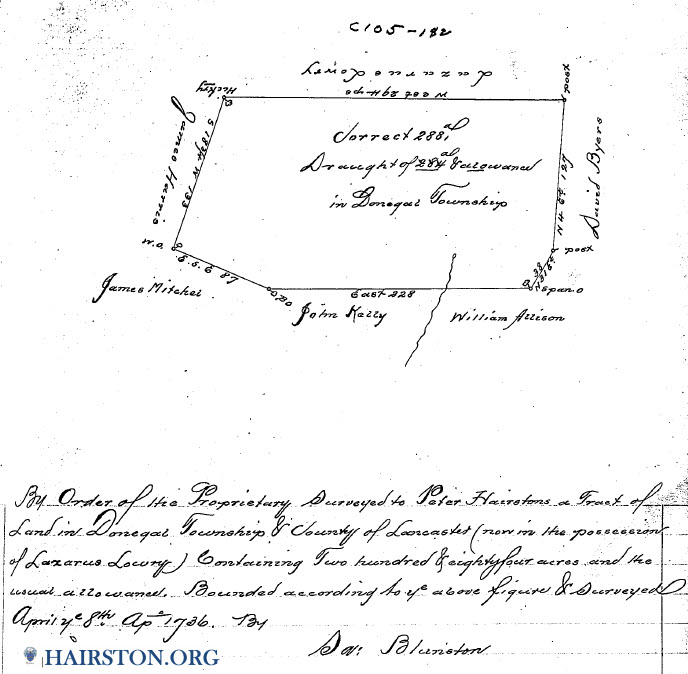 C105-182
Lazarus Lowry
W 207 294 ps
Hickry
post
Correct 288 al
Draught of 284 al & allowance
in Donegal Township
James Harris
S 18 W 133
David Byers
N 4 E 127
W.O.
S S E 87
post
James Mitchel
B.O
East 228
Span. O
John Kelly
William Allison
By Order of the Proprietary Surveyed to Peter Hairstons a Tract of
Land in Donegal Township & County of Lancaster (now in the possession
of Lazarus Lowry) Containing Two hundred & eighty four acres and the
usual allowance. Bounded according to ye above figure & Surveyed
April ye 8th Ap 1736. By
Sa: Blunston
HAIRSTON.ORG